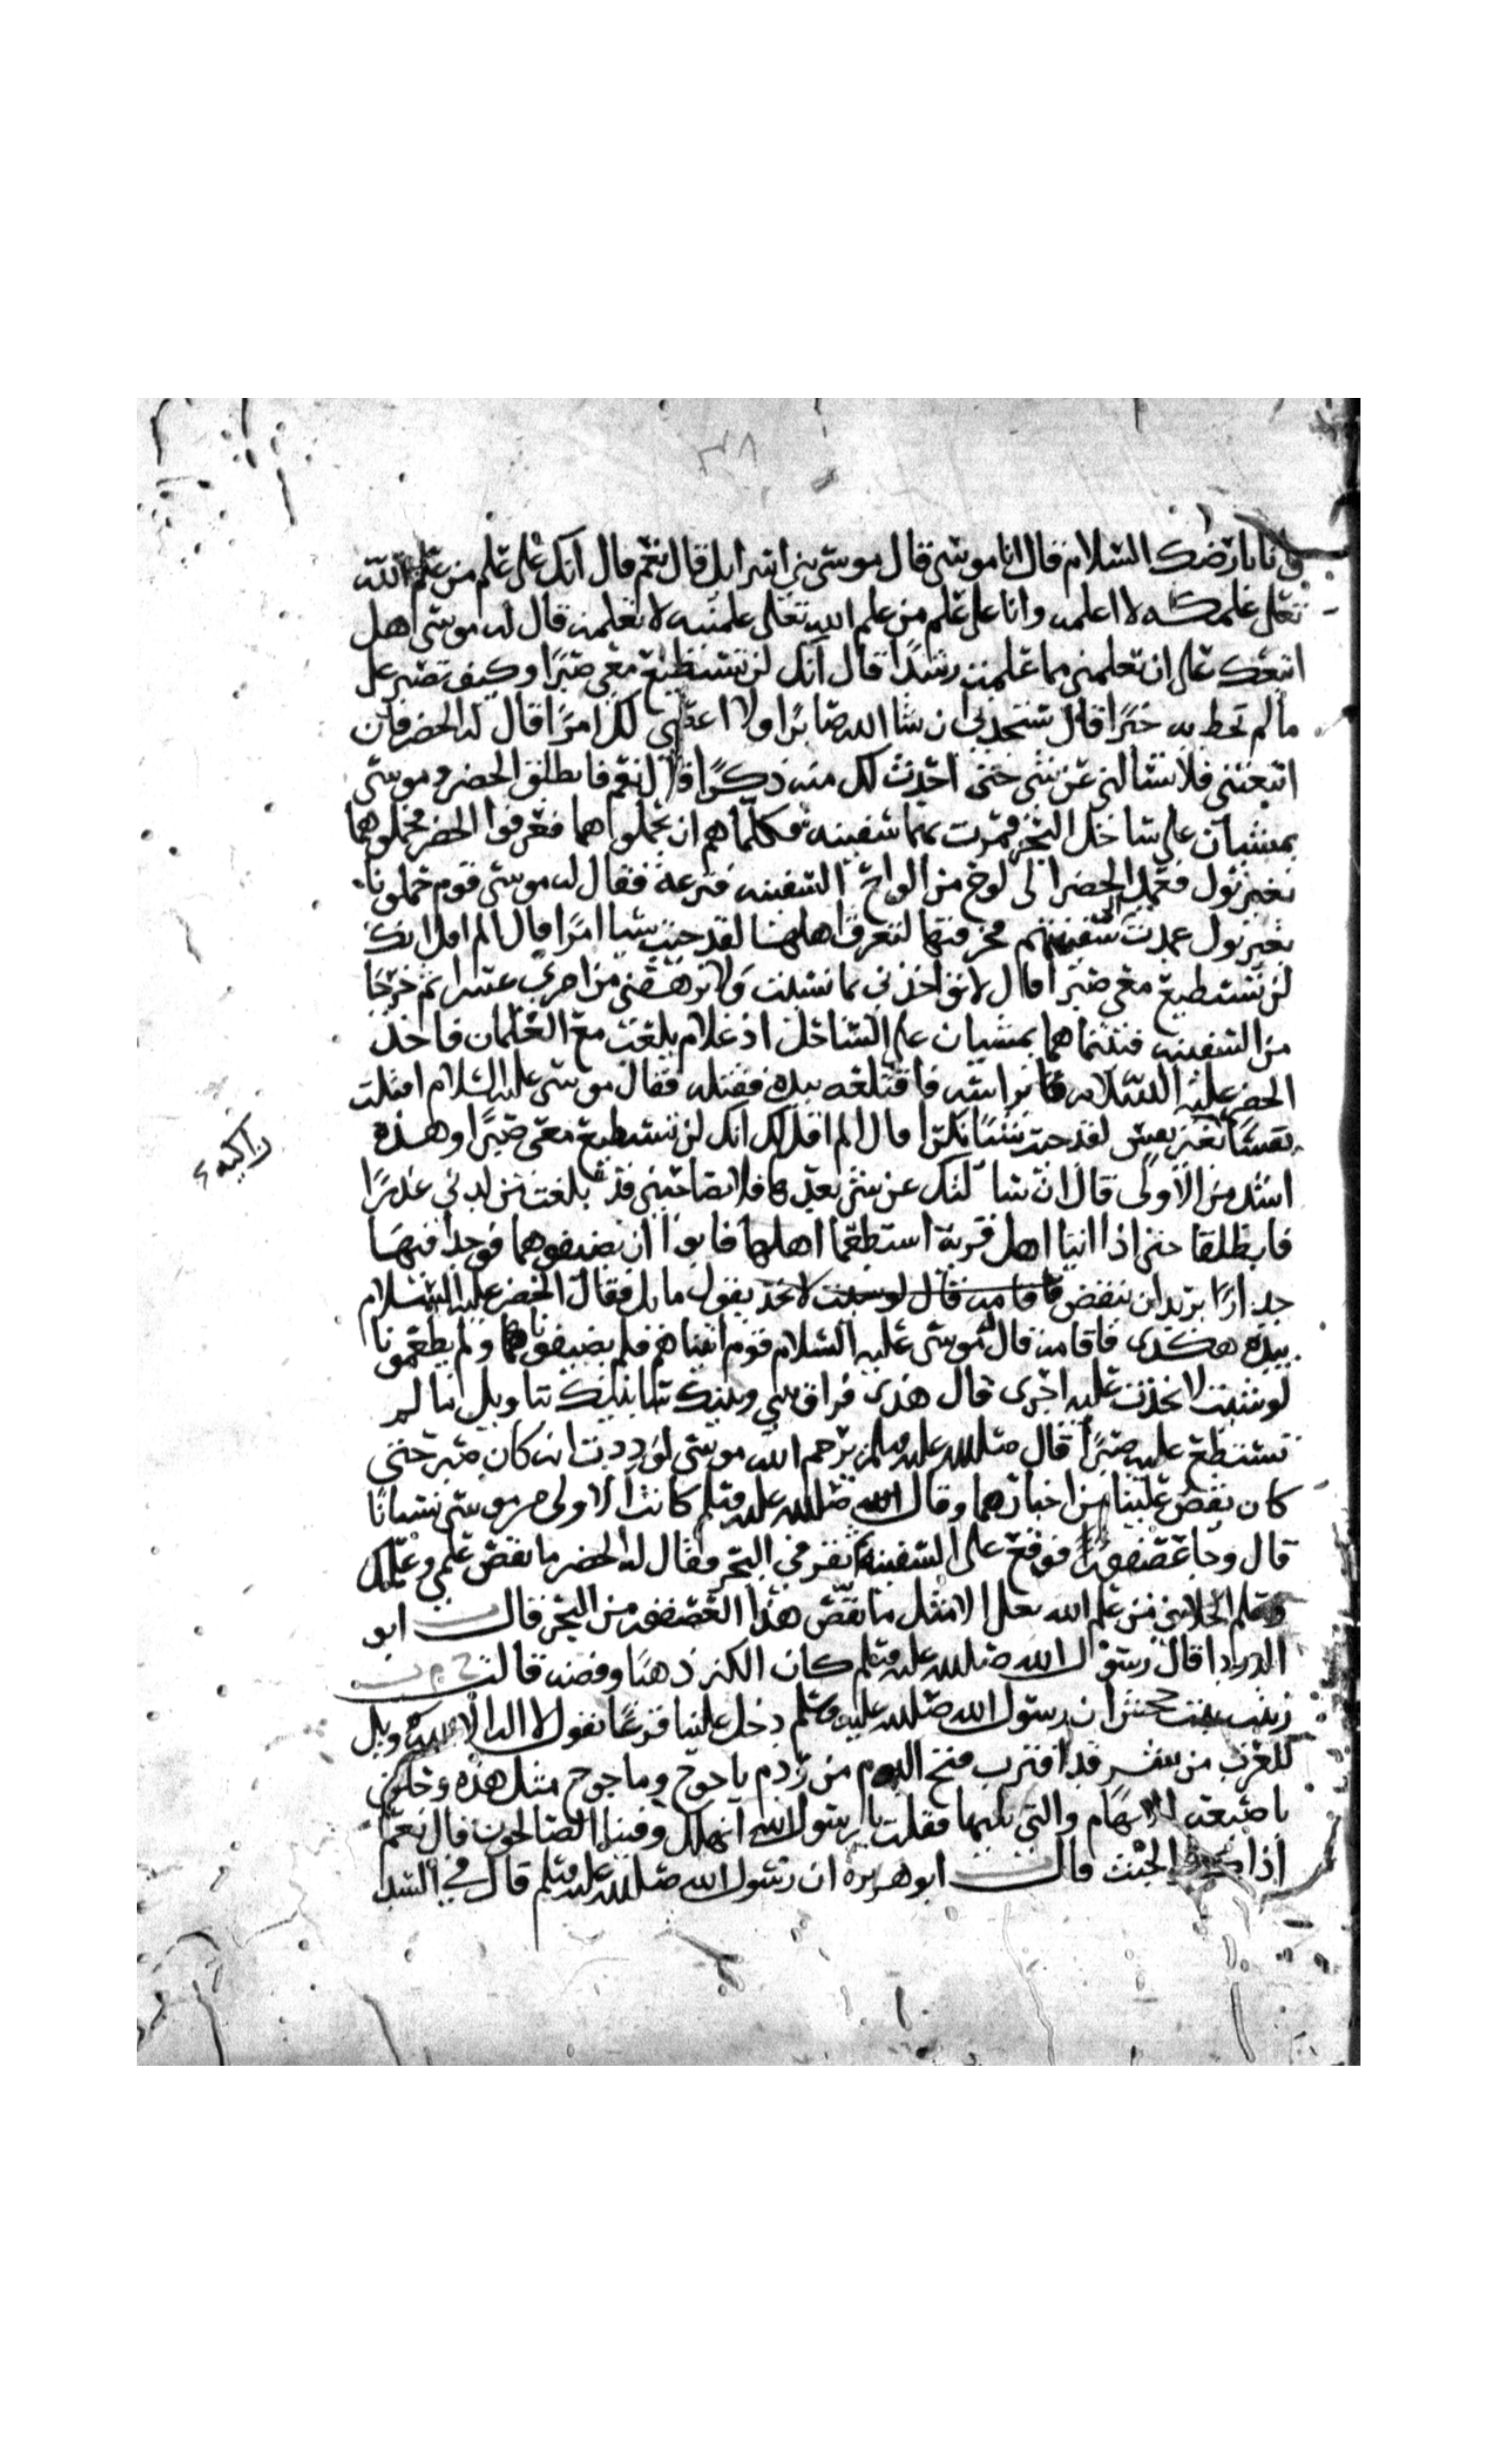 ٣٨
وانا بارضك السلام قال انا موسى قال موسى بني اسرايل قال نعم قال انك على علم من علم الله
تعلى علمكه لا اعلمه وانا على علم من علم الله تعلى علمنيه لا تعلمه قال له موسى اهل
اتبعك على ان تعلمني مما علمت رشدا قال انك لن تستطيع معي صبرًا وكيف تصبر على
ما لم تحط به خبرًا قال ستجدني ان شا الله صابرًا ولا اعصي لك امرًا قال له الخضر فان
اتبعتني فلا تسالني عن شي حتى احدث لك منه ذكرًا قال نعم فانطلق الخضر وموسى
يمشيان على ساحل البحر فمرت بهما سفينه فكلماهم ان يحملوهما فعرفوا الخضر فحملوهما
بغير نول فعمد الخضر الى لوح من الواح السفينه فنزعه فقال له موسى قوم حملونا
بغير نول عمدت الى سفينتهم فخرقتها لتغرق اهلها لقد جيت شيا امرًا قال الم اقل انك
لن تستطيع معي صبرا قال لا تواخذني بما نسيت ولا ترهقني من امري عسرا ثم خرجا
من السفينه فبينما هما يمشيان على الساحل اذ غلام يلعب مع الغلمان فاخذ
الخضر عليه السلام براسه فاقتلعه بيده فقتله فقال موسى عليه السلام اقتلت
نفسًا بغير نفس لقد جيت شيًا نكرا قال الم اقل لك انك لن تستطيع معي صبرًا وهذه
اشد من الاولى قال ان سالتك عن شي بعدها فلا تصاحبني قد بلغت من لدني عذرًا
فانطلقا حتى اذا اتيا اهل قرية استطعما اهلها فابوا ان يضيفوهما فوجدا فيها
جدارًا يريد ان ينقض فاقامه قال لو شيت لاتخذ يقول مايل فقال الخضر عليه السلام
بيده هكذى فاقامه قال موسى عليه السلام قوم اتيناهم فلم يضيفونا ولم يطعمونا
لو شيت لاتخذت عليه اجرى قال هذى فراق بيني وبينك سانبيك بتاويل ما لم
تستطع عليه صبرًا قال صلى الله عليه وسلم يرحم الله موسى لوددت انه كان صبر حتى
كان يقص علينا من اخبارهما وقال صلى الله عليه وسلم كانت الاولى من موسى نسيانًا
قال وجا عصفور فوقع على السفينه ثم نقر في البحر فقال له الخضر ما نقص علمي وعلمك
وعلم الخلايق من علم الله تعلى الا مثل ما نقص هذا العصفور من البحر قال ابو
الدردا قال رسول الله صلى الله عليه وسلم كان الكنز ذهبًا وفضه قالت
زينب بنت جحش ان رسول الله صلى الله عليه وسلم دخل علينا فزعًا يقول لا اله الا الله ويل
للعرب من شر قد اقترب فتح اليوم من ردم ياجوج وماجوج مثل هذه وحلق
باصبعه الابهام والتي تليها فقلت يا رسول الله انهلك وفينا الصالحون قال نعم
اذا كثر الخبث قال ابو هريرة ان رسول الله صلى الله عليه وسلم قال في السد